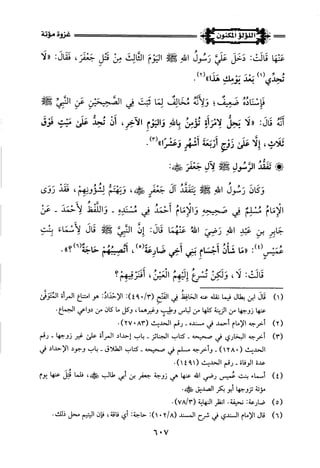 اللؤلؤ المكنون
غزوة مؤتة
عنها قالت: دخل علي رسول الله ﷺ اليوم الثالث من قتل جعفر، فقال: «لا
تحدي(١) بعد يومك هذا»(٢).
فإسناده ضعيف؛ ولأنه مخالف لما ثبت في الصحيحين عن النبي ﷺ
أنه قال: «لا يحل لامرأة تؤمن بالله واليوم الآخر، أن تحد على ميت فوق
ثلاث، إلا على زوج أربعة أشهر وعشرا»(٣).
تفقد الرسول ﷺ لآل جعفر
وكان رسول الله ﷺ يتفقد آل جعفر ﷺ، ويهتم لشؤونهم، فقد روى
الإمام مسلم في صحيحه والإمام أحمد في مسنده - واللفظ لأحمد - عن
جابر بن عبد الله رضي الله عنهما قال: إن النبي ﷺ قال لأسماء بنت
عميس(٤): «ما شأن أجسام بني أخي ضارعة(٥)، أتصيبهم حاجة(٦)؟».
قالت: لا، ولكن تسرع إليهم العين، أفنرقيهم؟
(١) قال ابن بطال فيما نقله عنه الحافظ في الفتح (٤٩٠/٣): الإحداد: هو امتناع المرأة المتوفى
عنها زوجها من الزينة كلها من لباس وطيب وغيرهما، وكل ما كان من دواعي الجماع.
(٢) أخرجه الإمام أحمد في مسنده - رقم الحديث (٢٧٠٨٣).
(٣) أخرجه البخاري في صحيحه - كتاب الجنائز - باب إحداد المرأة على غير زوجها - رقم
الحديث (١٢٨٠) - وأخرجه مسلم في صحيحه - كتاب الطلاق - باب وجوب الإحداد في
عدة الوفاة - رقم الحديث (١٤٩١).
(٤) أسماء بنت عميس رضي الله عنها هي زوجة جعفر بن أبي طالب، فلما قتل عنها يوم
مؤتة تزوجها أبو بكر الصديق.
(٥) ضارعة: نحيفة. انظر النهاية (٧٨/٣).
(٦) قال الإمام السندي في شرح المسند (١٠٢/٨): حاجة: أي فاقة، فإن اليتيم محل ذلك.
٦٠٧